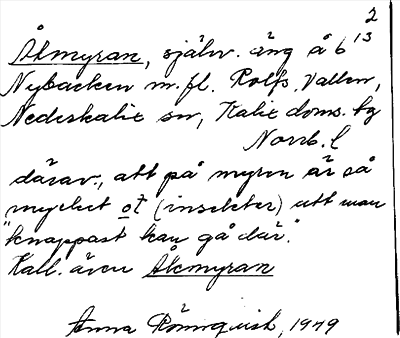 2
Åtmyran, självr. äng å 6¹³
Nybacken m.fl. Rolfs, Vallen,
Nederkalix sn, Kalix doms. tg
Norrb. l
därav, att på myren är så
mycket ot (insekter) att man
"knappast kan gå där".
Kall. även Åkmyran
Anna Rönnquist, 1949